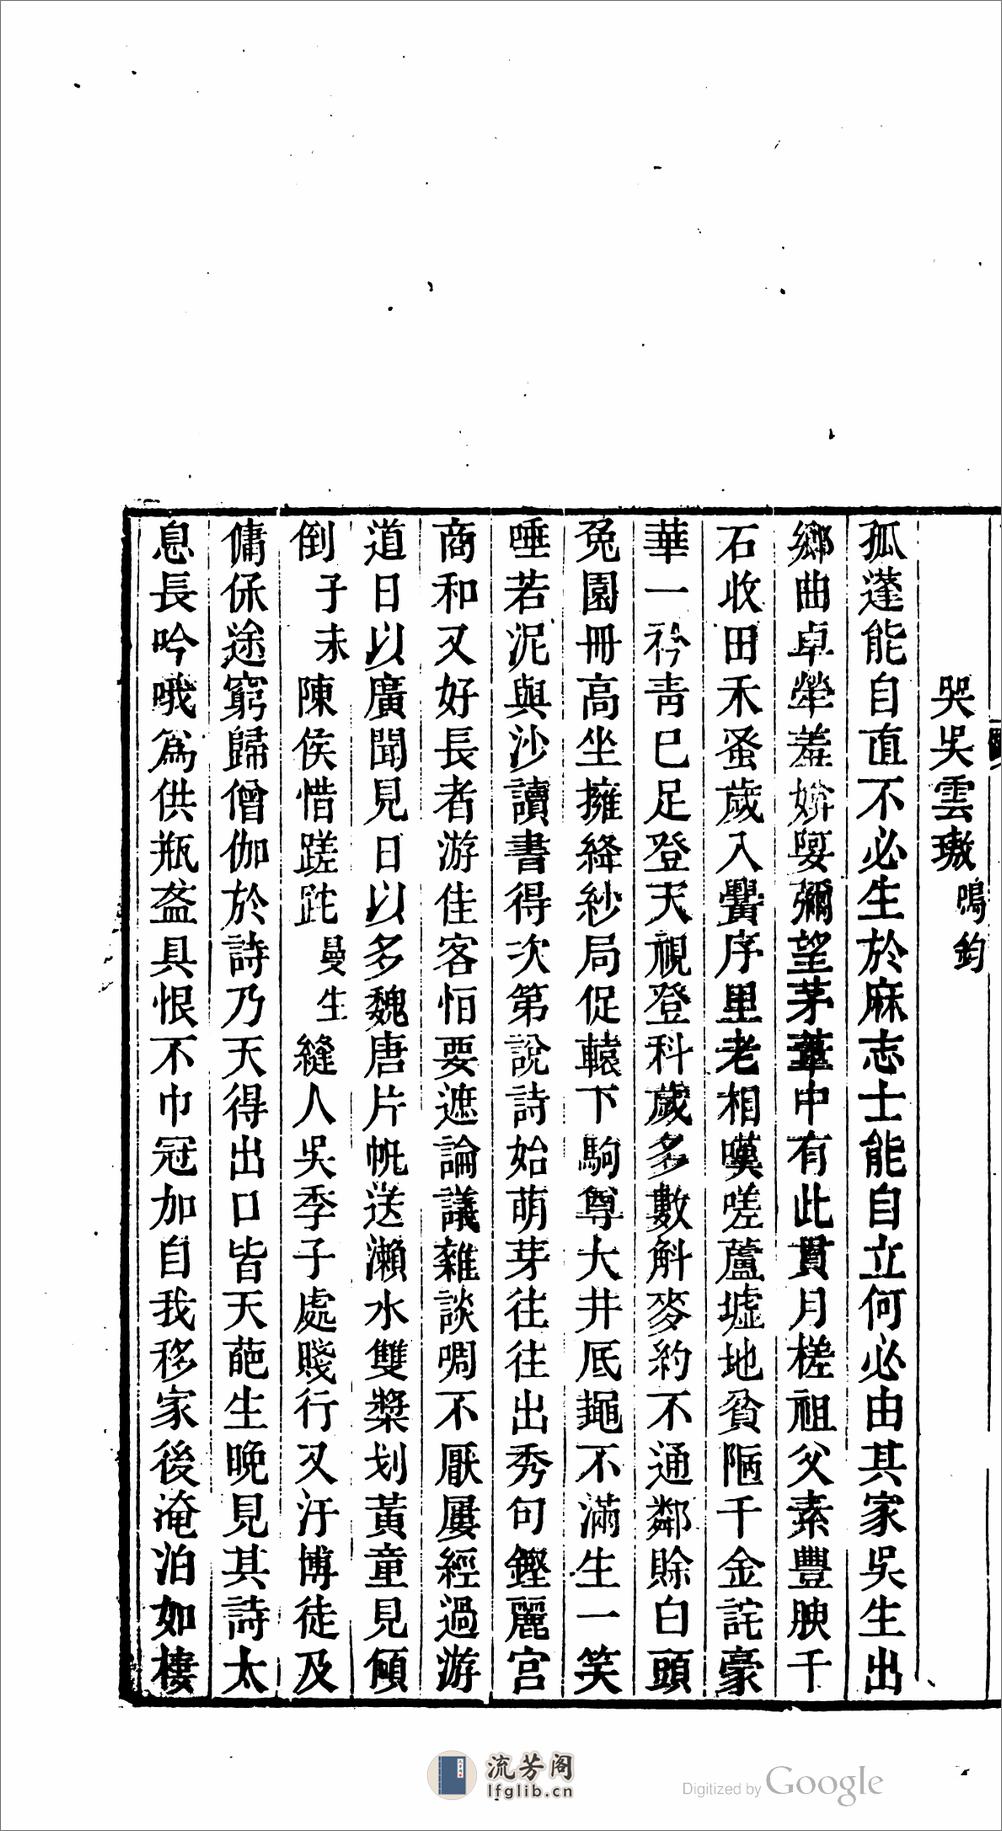 哭吳雲璈鳴鈞
孤蓬能自直不必生於麻志士能自立何必由其家吳生出
鄉曲卓犖羞媕娿彌望茅葦中有此貫月槎祖父素豐腴千
石收田禾蚤歲入黌序里老相嘆嗟蘆墟地貧陋千金詫豪
華一衿青已足登天視登科歲多數斛麥約不通鄰賒白頭
兔園冊高坐擁絳紗局促轅下駒尊大井底黽不滿生一笑
唾若泥與沙讀書得次第說詩始萌芽往往出秀句鏗麗宮
商和又好長者游佳客怕要遮論議雜談啁不厭屢經過游
道日以廣聞見日以多魏唐片帆送瀨水雙槳划黃童見傾
倒子未陳侯惜蹉跎曼生縫人吳季子處賤行又汙博徒及
傭保途窮歸僧伽於詩乃天得出口皆天葩生晚見其詩太
息長吟哦為供瓶盎具恨不巾冠加自我移家後淹泊如棲
流芳阁
lfglib.cn
Digitized by Google